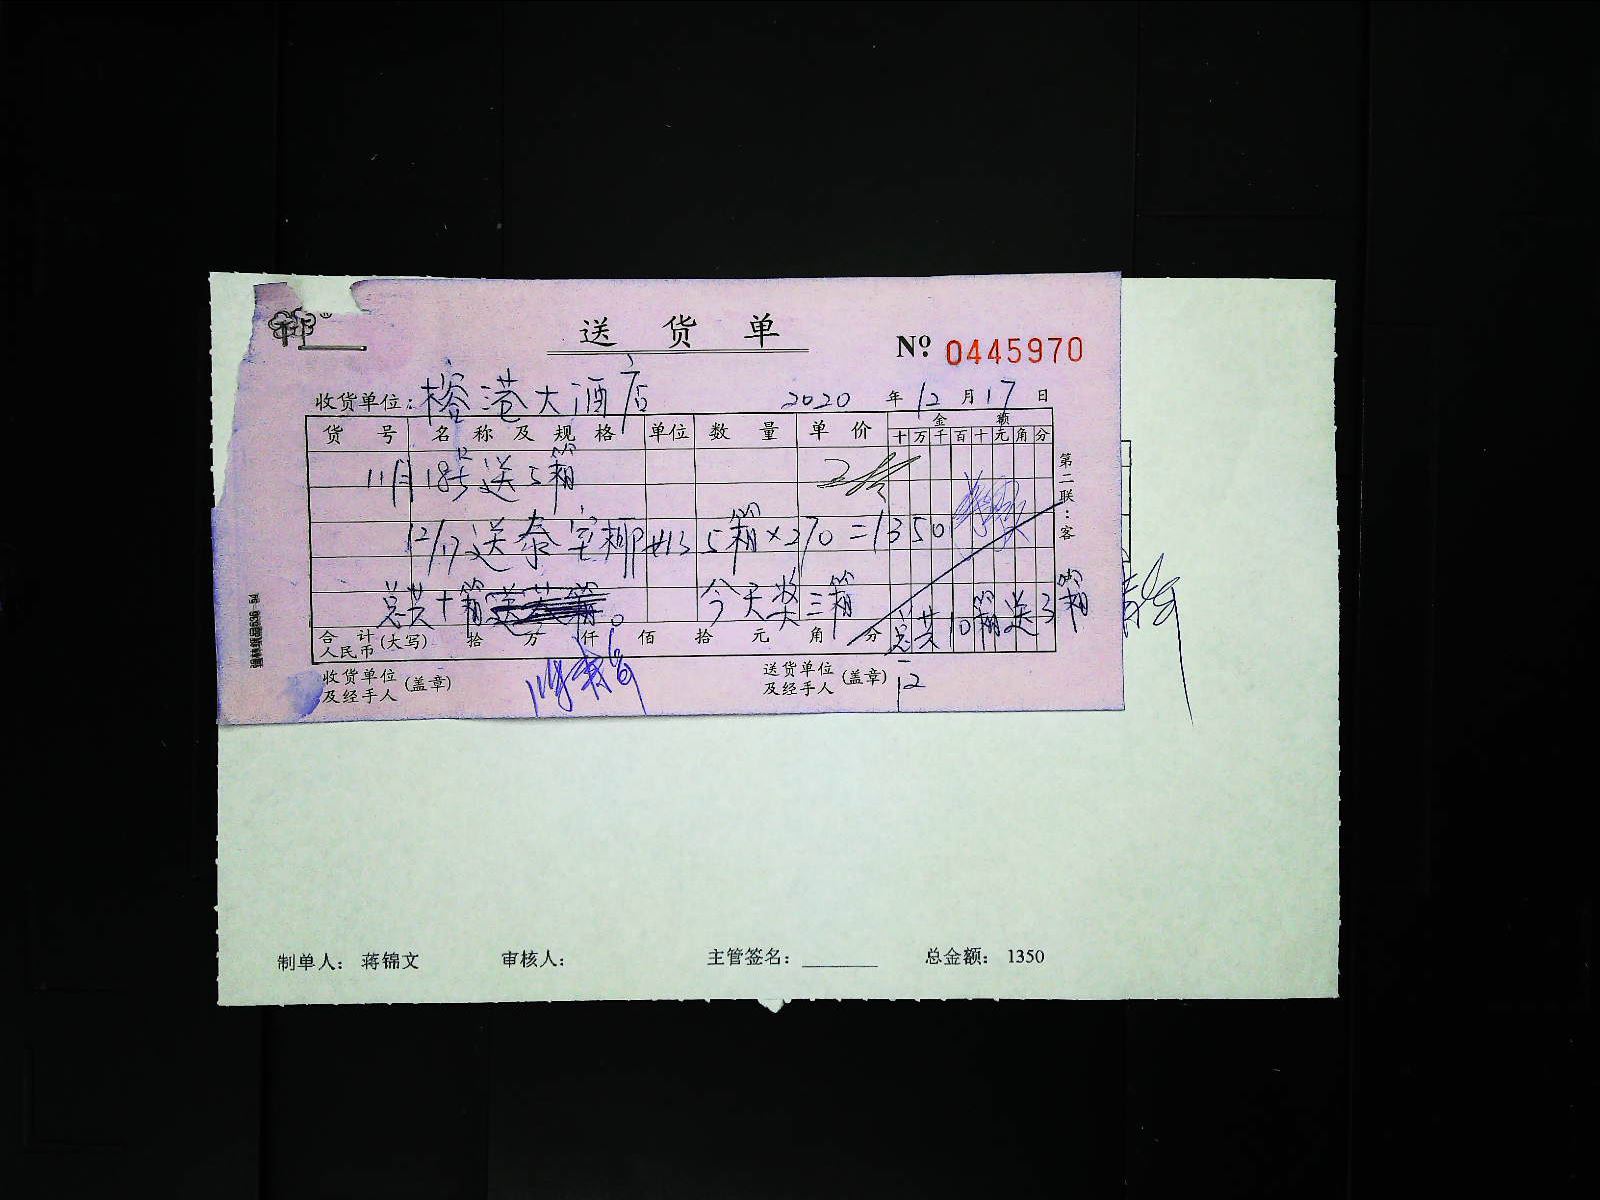 送 货 单
№ 0445970
收货单位：榕港大酒店 2020 年 12 月 17 日
货 号 名 称 及 规 格 单位 数 量 单 价 金 额
十 万 千 百 十 元 角 分
11月18号送5箱
12/17送泰 椰 #13 5箱×270=1350
总共十箱 今天奖三箱 总共10箱送3箱
合 计 人民币 (大写) 拾 万 仟 佰 拾 元 角 分
收货单位及经手人 (盖章) 送货单位及经手人 (盖章)
12
第二联：客
制单人： 蒋锦文 审核人： 主管签名： 总金额： 1350